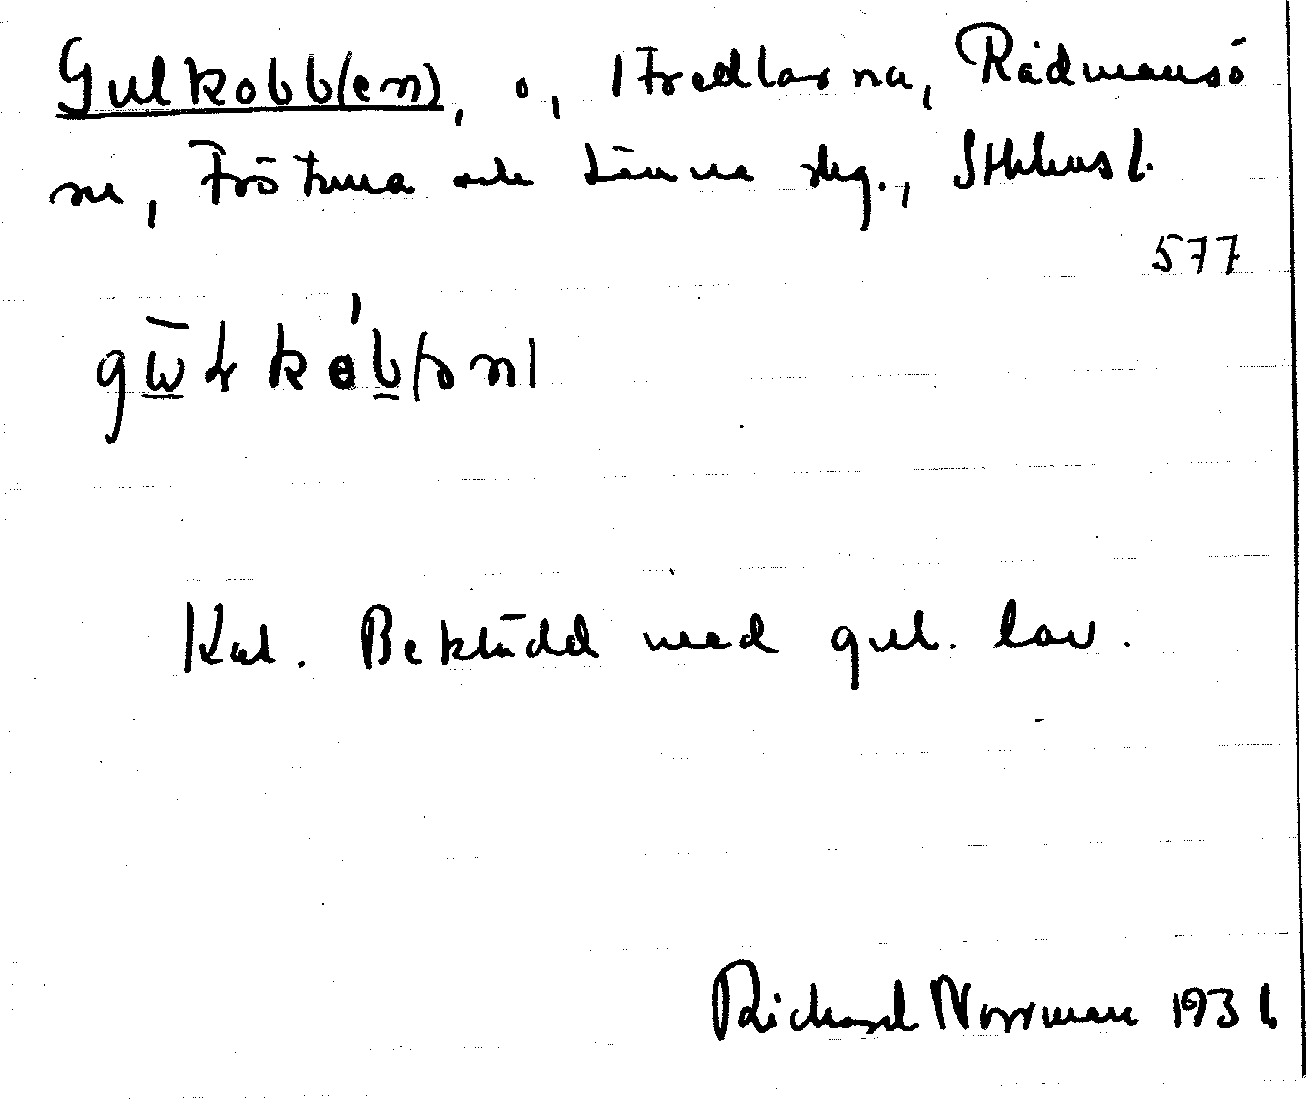 Gulkobb(en), ö, i Fredlarna, Rådmansö
sn, Frötuna och Länna skg., Sthlms l.
577
Kal. Beklädd med gul. lav.
Richard Norrman 1931